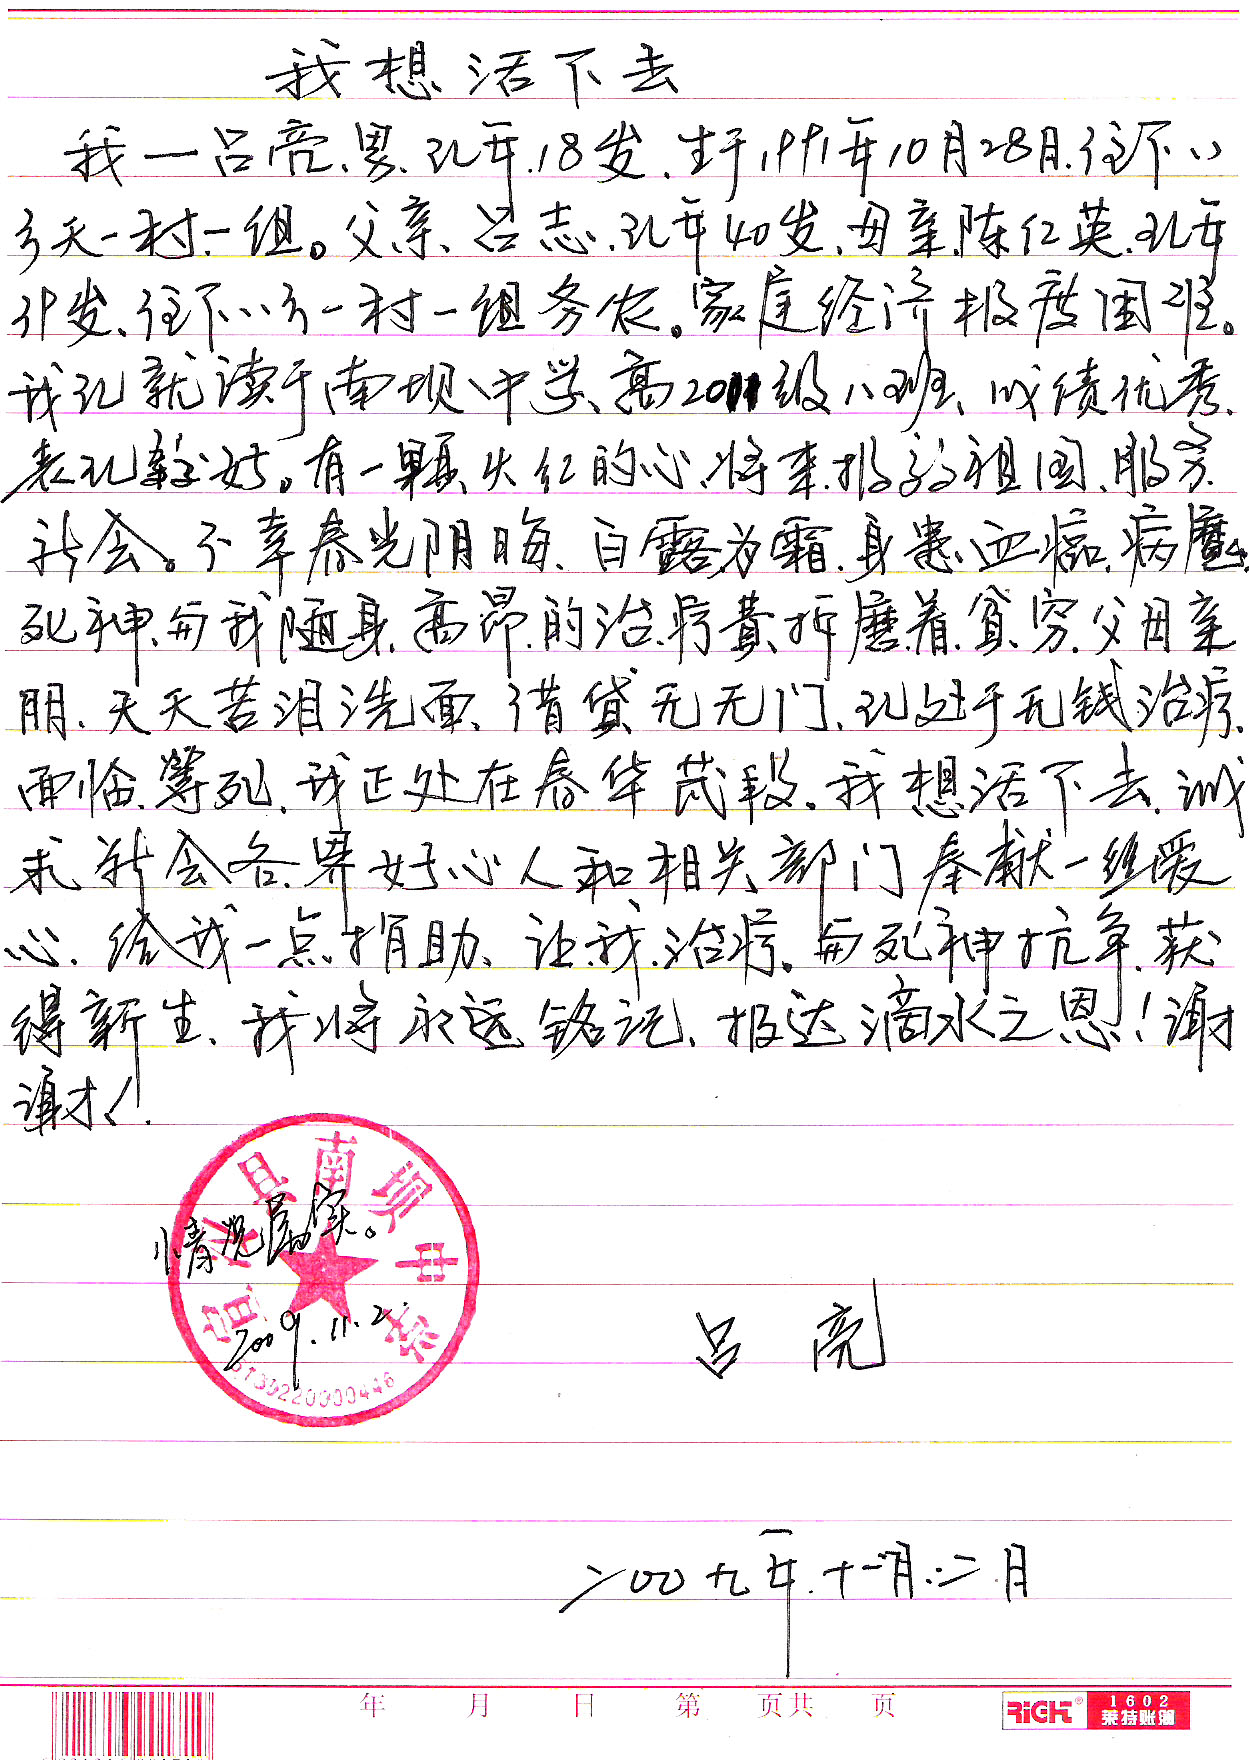 我想活下去
我一吕亮、男、现年18岁、生于1991年10月28日、住下八
乡天一村一组。父亲、吕志、现年40岁、母亲陈仁英、现年
39岁、住下八乡一村一组务农。家庭经济极度困难。
我现就读于南坝中学、高2011级八班、成绩优秀、
表现较好。有一颗火红的心、将来报效祖国、服务
社会。不幸春光阴晦、白露为霜、身患血癌、病魔
死神、与我随身、高昂的治疗费折磨着贫穷父母亲
朋、天天苦泪洗面、借贷无无门、现处于无钱治疗、
面临等死、我正处在春华茂段、我想活下去、诚
求社会各界好心人和相关部门奉献一丝爱
心、给我一点捐助、让我治疗。与死神抗争、获
得新生、我将永远铭记、报达滴水之恩！谢
谢
宣汉县南坝中学
情况属实。
2009.11.2.
5130220000446
吕亮
二00九年十一月二日
年 月 日 第 页共 页
RiCH® 1602
莱特账册